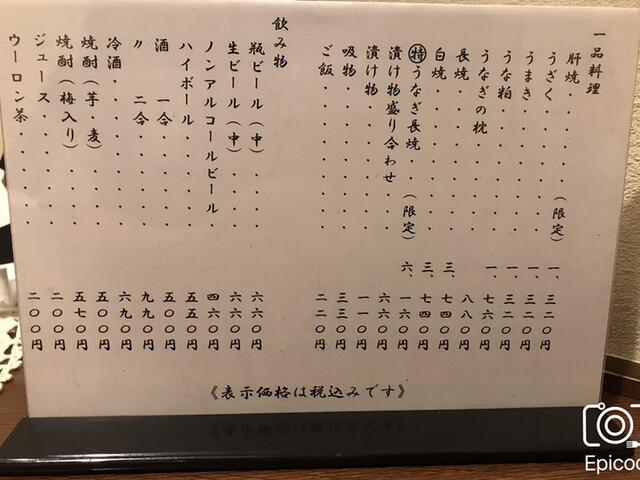 一品料理
肝焼・・・・・・(限定) 一、三二〇円
うざく・・・・・・・ 一、三二〇円
うまき・・・・・・・ 一、三二〇円
うな粕・・・・・・・ 一、七六〇円
うなぎの枕・・・・・ 八八〇円
長焼・・・・・・・・ 三、七四〇円
白焼・・・・・・・・ 三、七四〇円
㊕うなぎ長焼・・(限定) 六、一六〇円
漬け物盛り合わせ・・ 六六〇円
漬け物・・・・・・・ 一一〇円
吸物・・・・・・・・ 三三〇円
ご飯・・・・・・・・ 二二〇円
飲み物
瓶ビール(中)・・・ 六六〇円
生ビール(中)・・・ 六六〇円
ノンアルコールビール・ 四六〇円
ハイボール・・・・・ 五五〇円
酒 一合・・・・・ 五〇〇円
〃 二合・・・・・ 九九〇円
冷酒・・・・・・・・ 六九〇円
焼酎(芋・麦)・・・ 五〇〇円
焼酎(梅入り)・・・ 五七〇円
ジュース・・・・・・ 二〇〇円
ウーロン茶・・・・・ 二〇〇円
《表示価格は税込みです》
Epicoo